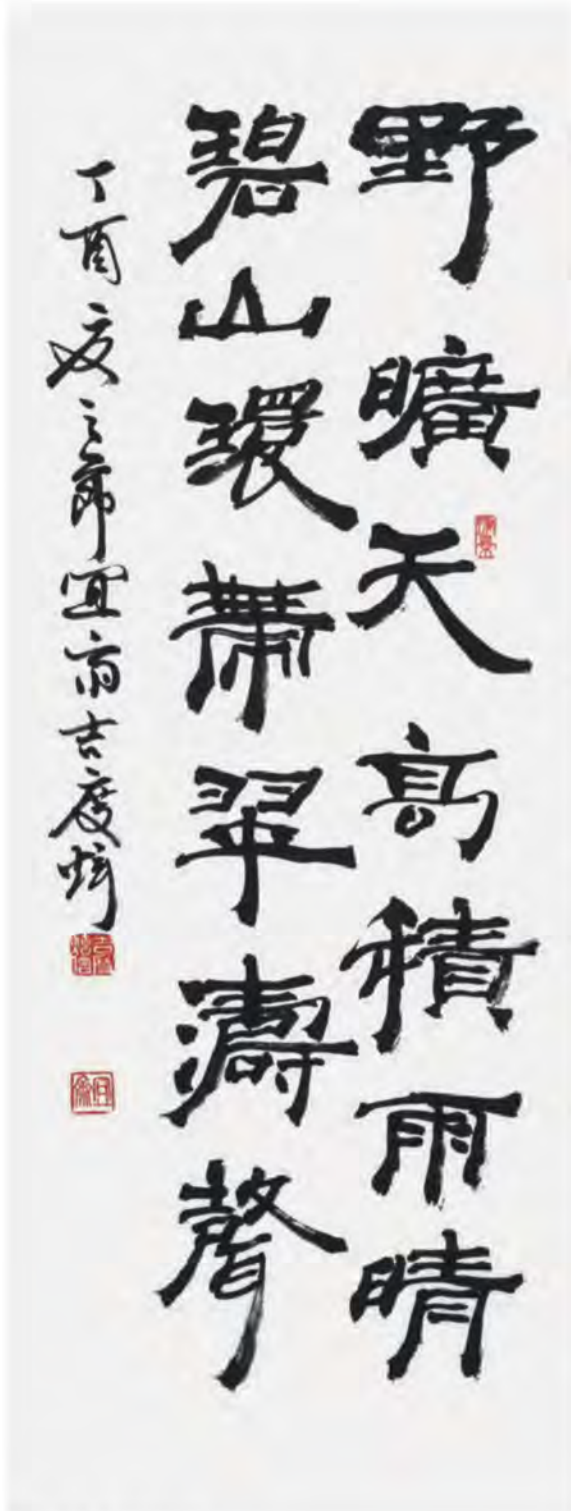 野曠天高積雨晴
碧山環帶翠濤聲
丁酉夏之節宜齋吉慶